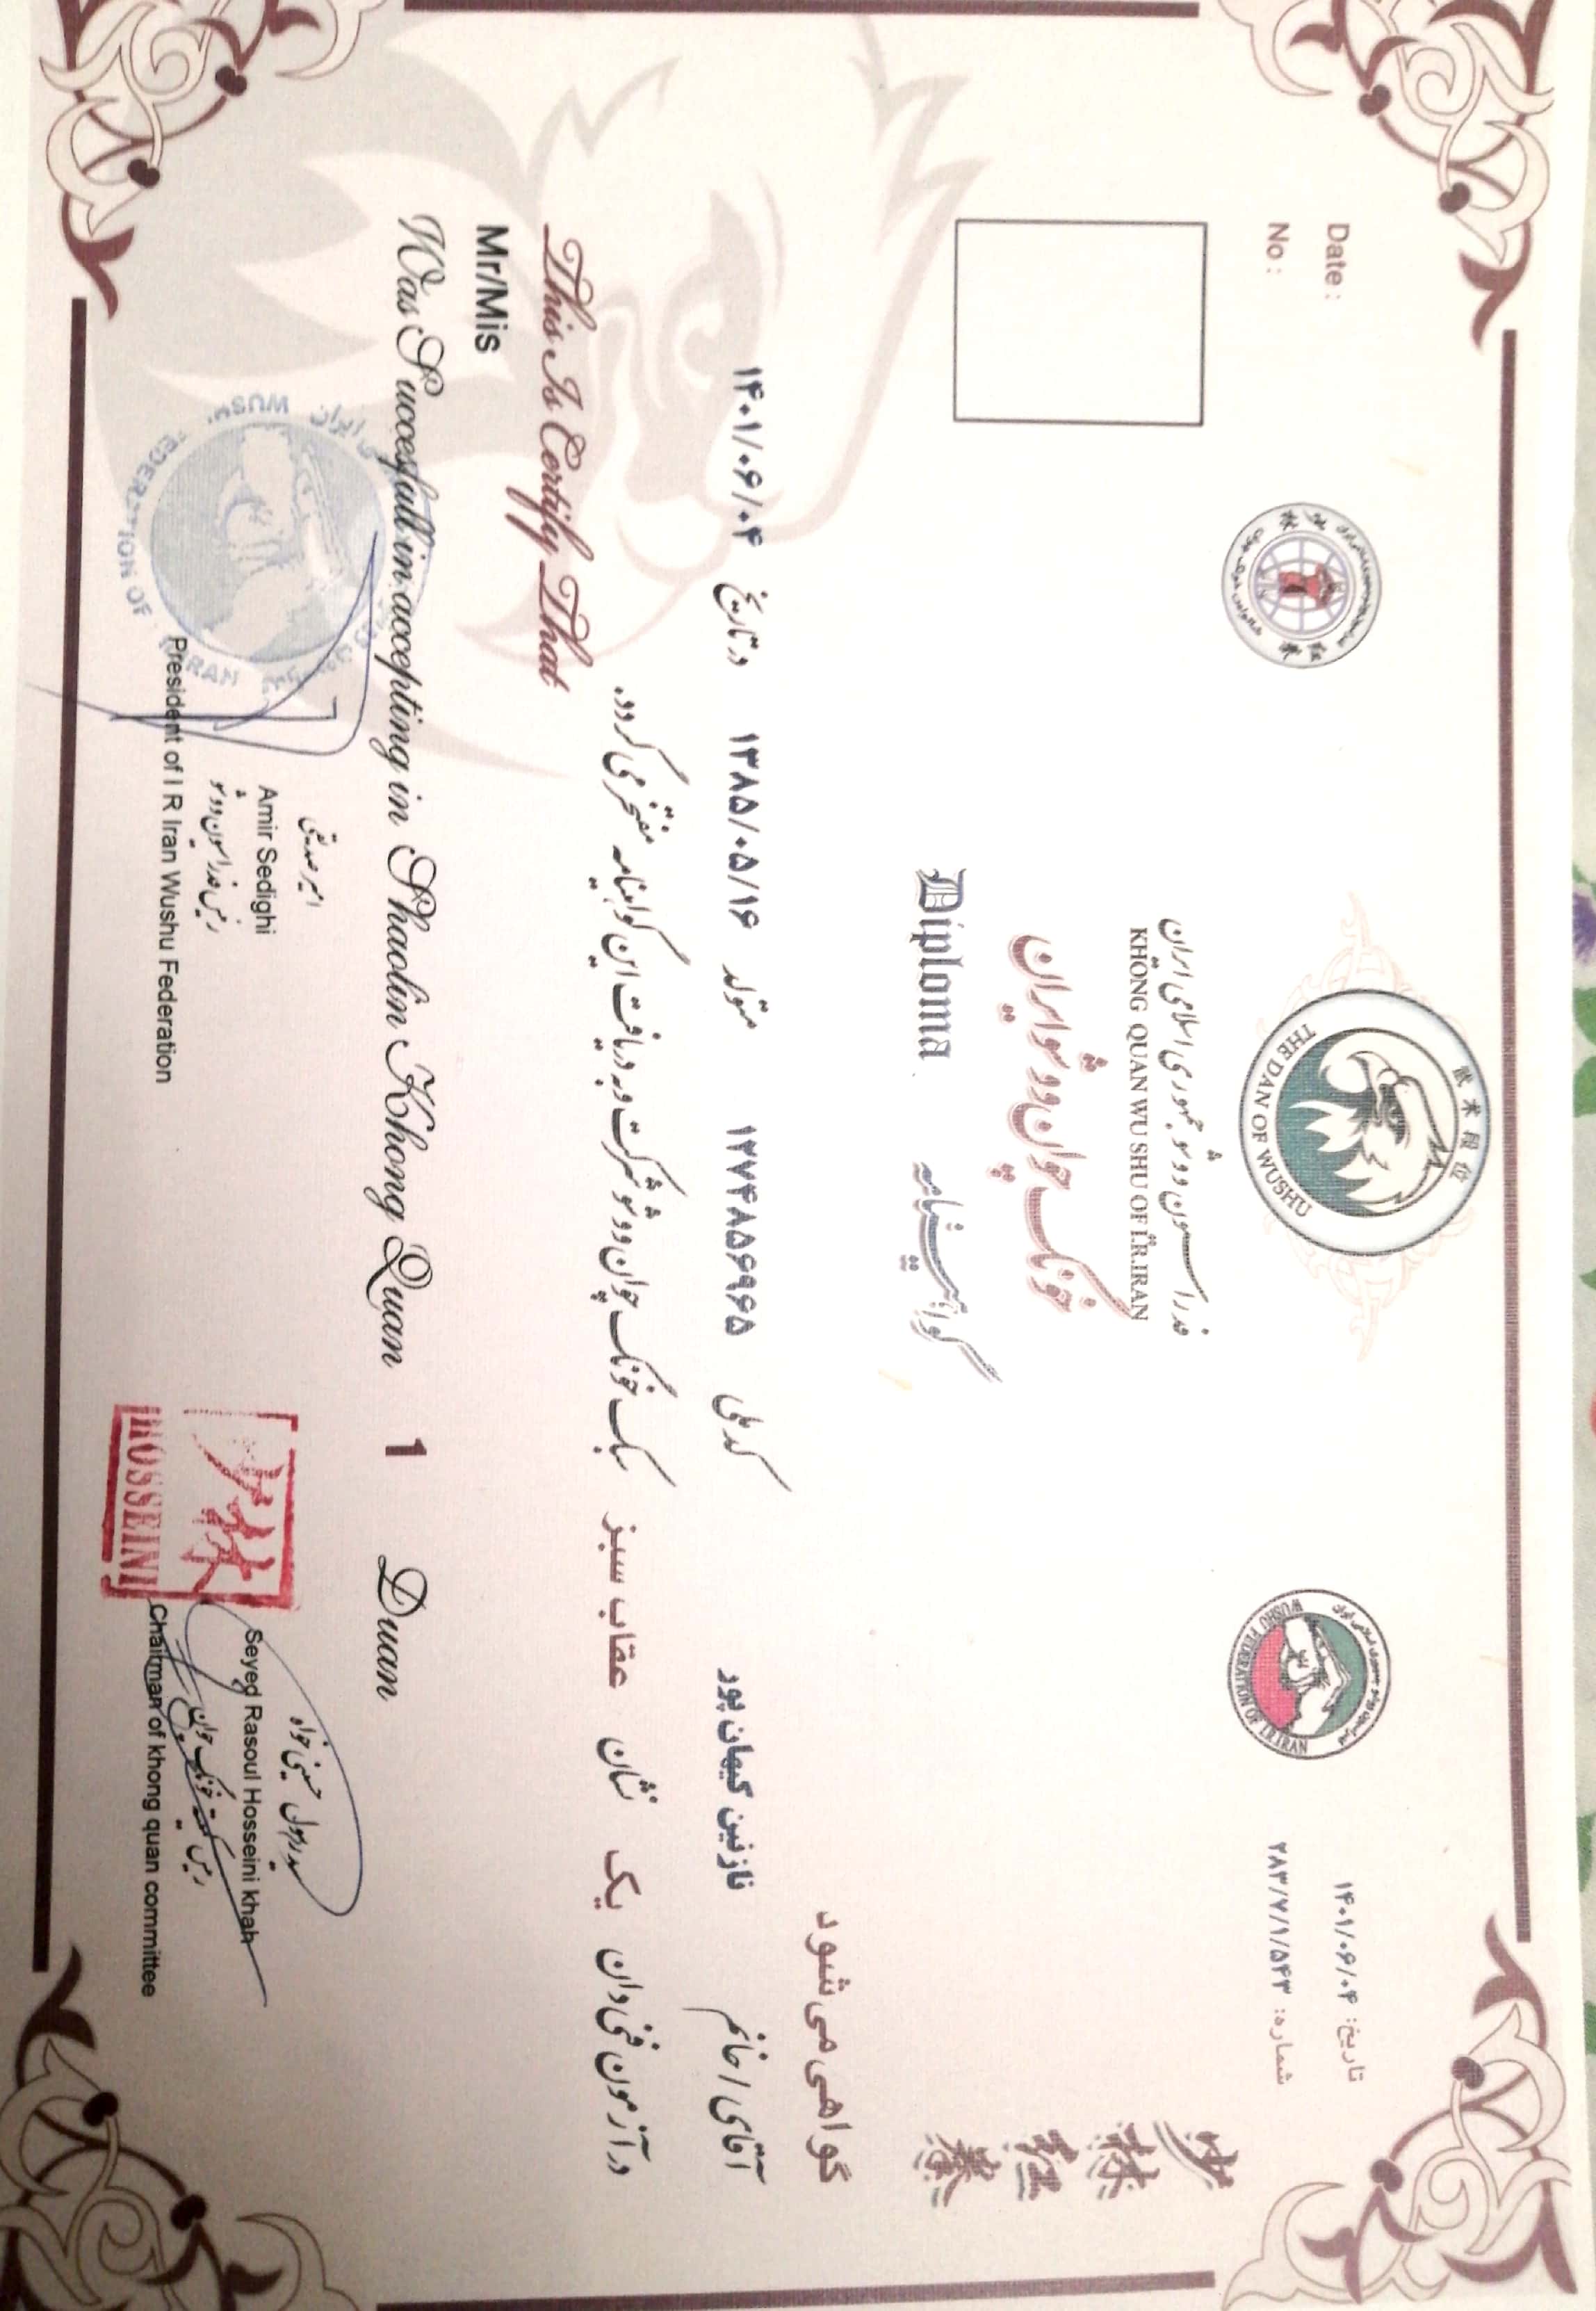 武术段位
THE DAN OF WUSHU
WUSHU FEDERATION OF I.R.IRAN
تاریخ: ۱۴۰۱/۰۶/۰۴
شماره: ۲۸۳/۷/۱/۵۴۳
Date :
No :
فدراسیون ووشو جمهوری اسلامی ایران
KHONG QUAN WU SHU OF I.R.IRAN
خونگ چوان ووشو ایران
گواهینامه
Diploma
少林红拳
گواهی می شود
آقای / خانم نازنین کیهان پور کد ملی ۱۲۷۴۸۵۶۹۶۵ متولد ۱۳۸۵/۰۵/۱۶ در تاریخ ۱۴۰۱/۰۶/۰۴
در آزمون فنی دان یک نشان عقاب سبز سبک خونگ چوان ووشو شرکت و به دریافت این گواهینامه مفتخر می گردد.
This Is Certify That
Mr/Mis
Was Succesfull in accepting in Shaolin Khong Quan 1 Duan
امیر صدیقی
Amir Sedighi
رئیس فدراسیون ووشو
President of I R Iran Wushu Federation
WUSHU FEDERATION OF I.R.IRAN
سید رسول حسینی خواه
Seyed Rasoul Hosseini khah
رئیس کمیته خونگ چوان
Chairman of khong quan committee
少林
HOSSEINI